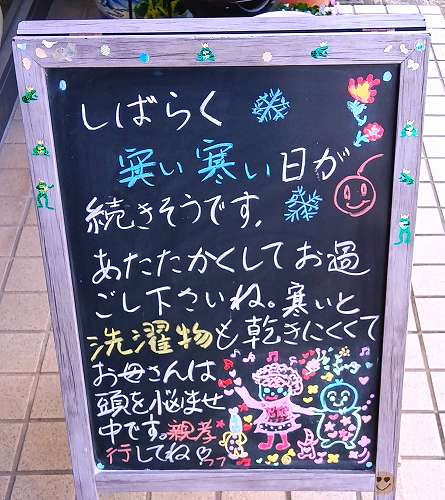 しばらく
寒い寒い日が
続きそうです。
あたたかくしてお過
ごし下さいね。寒いと
洗濯物も乾きにくくて
お母さんは
頭を悩ませ
中です。親孝
行してね